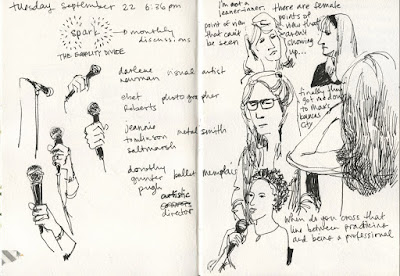 tuesday september 22 6:36 pm
spark
a monthly
discuss.ons
THE EQUALITY DIVIDE
darlene newman visual artist
chet roberts photographer
jeannie
tomlinson
saltmarsh
metal smith
dorothy
gunter
pugh
ballet memphis
artistic
director
I'm not a
point of view
that can't be
seen
there are female
points of
view that
arent
showing
up...
finally they
got
to
Kansas
City
When do you cross that
line between practicing
and being a professional